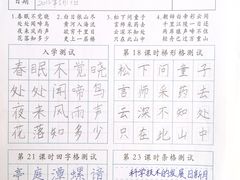 日期
1.春眠不觉晓
处处闻啼鸟
夜来风雨声
花落知多少
2.白日依山尽
黄河入海流
欲穷千里目
更上一层楼
3.松下问童子
言师采药去
只在此山中
云深不知处
入学测试
春眠不觉晓
处处闻啼鸟
夜来风雨声
花落知多少
第18课时梯形格测试
松下问童子
言师采药去
云深不知处
只在此山中
第21课时回字格测试
亭庭潭蝶谱
第23课时条格测试
科学技术的发展日新月